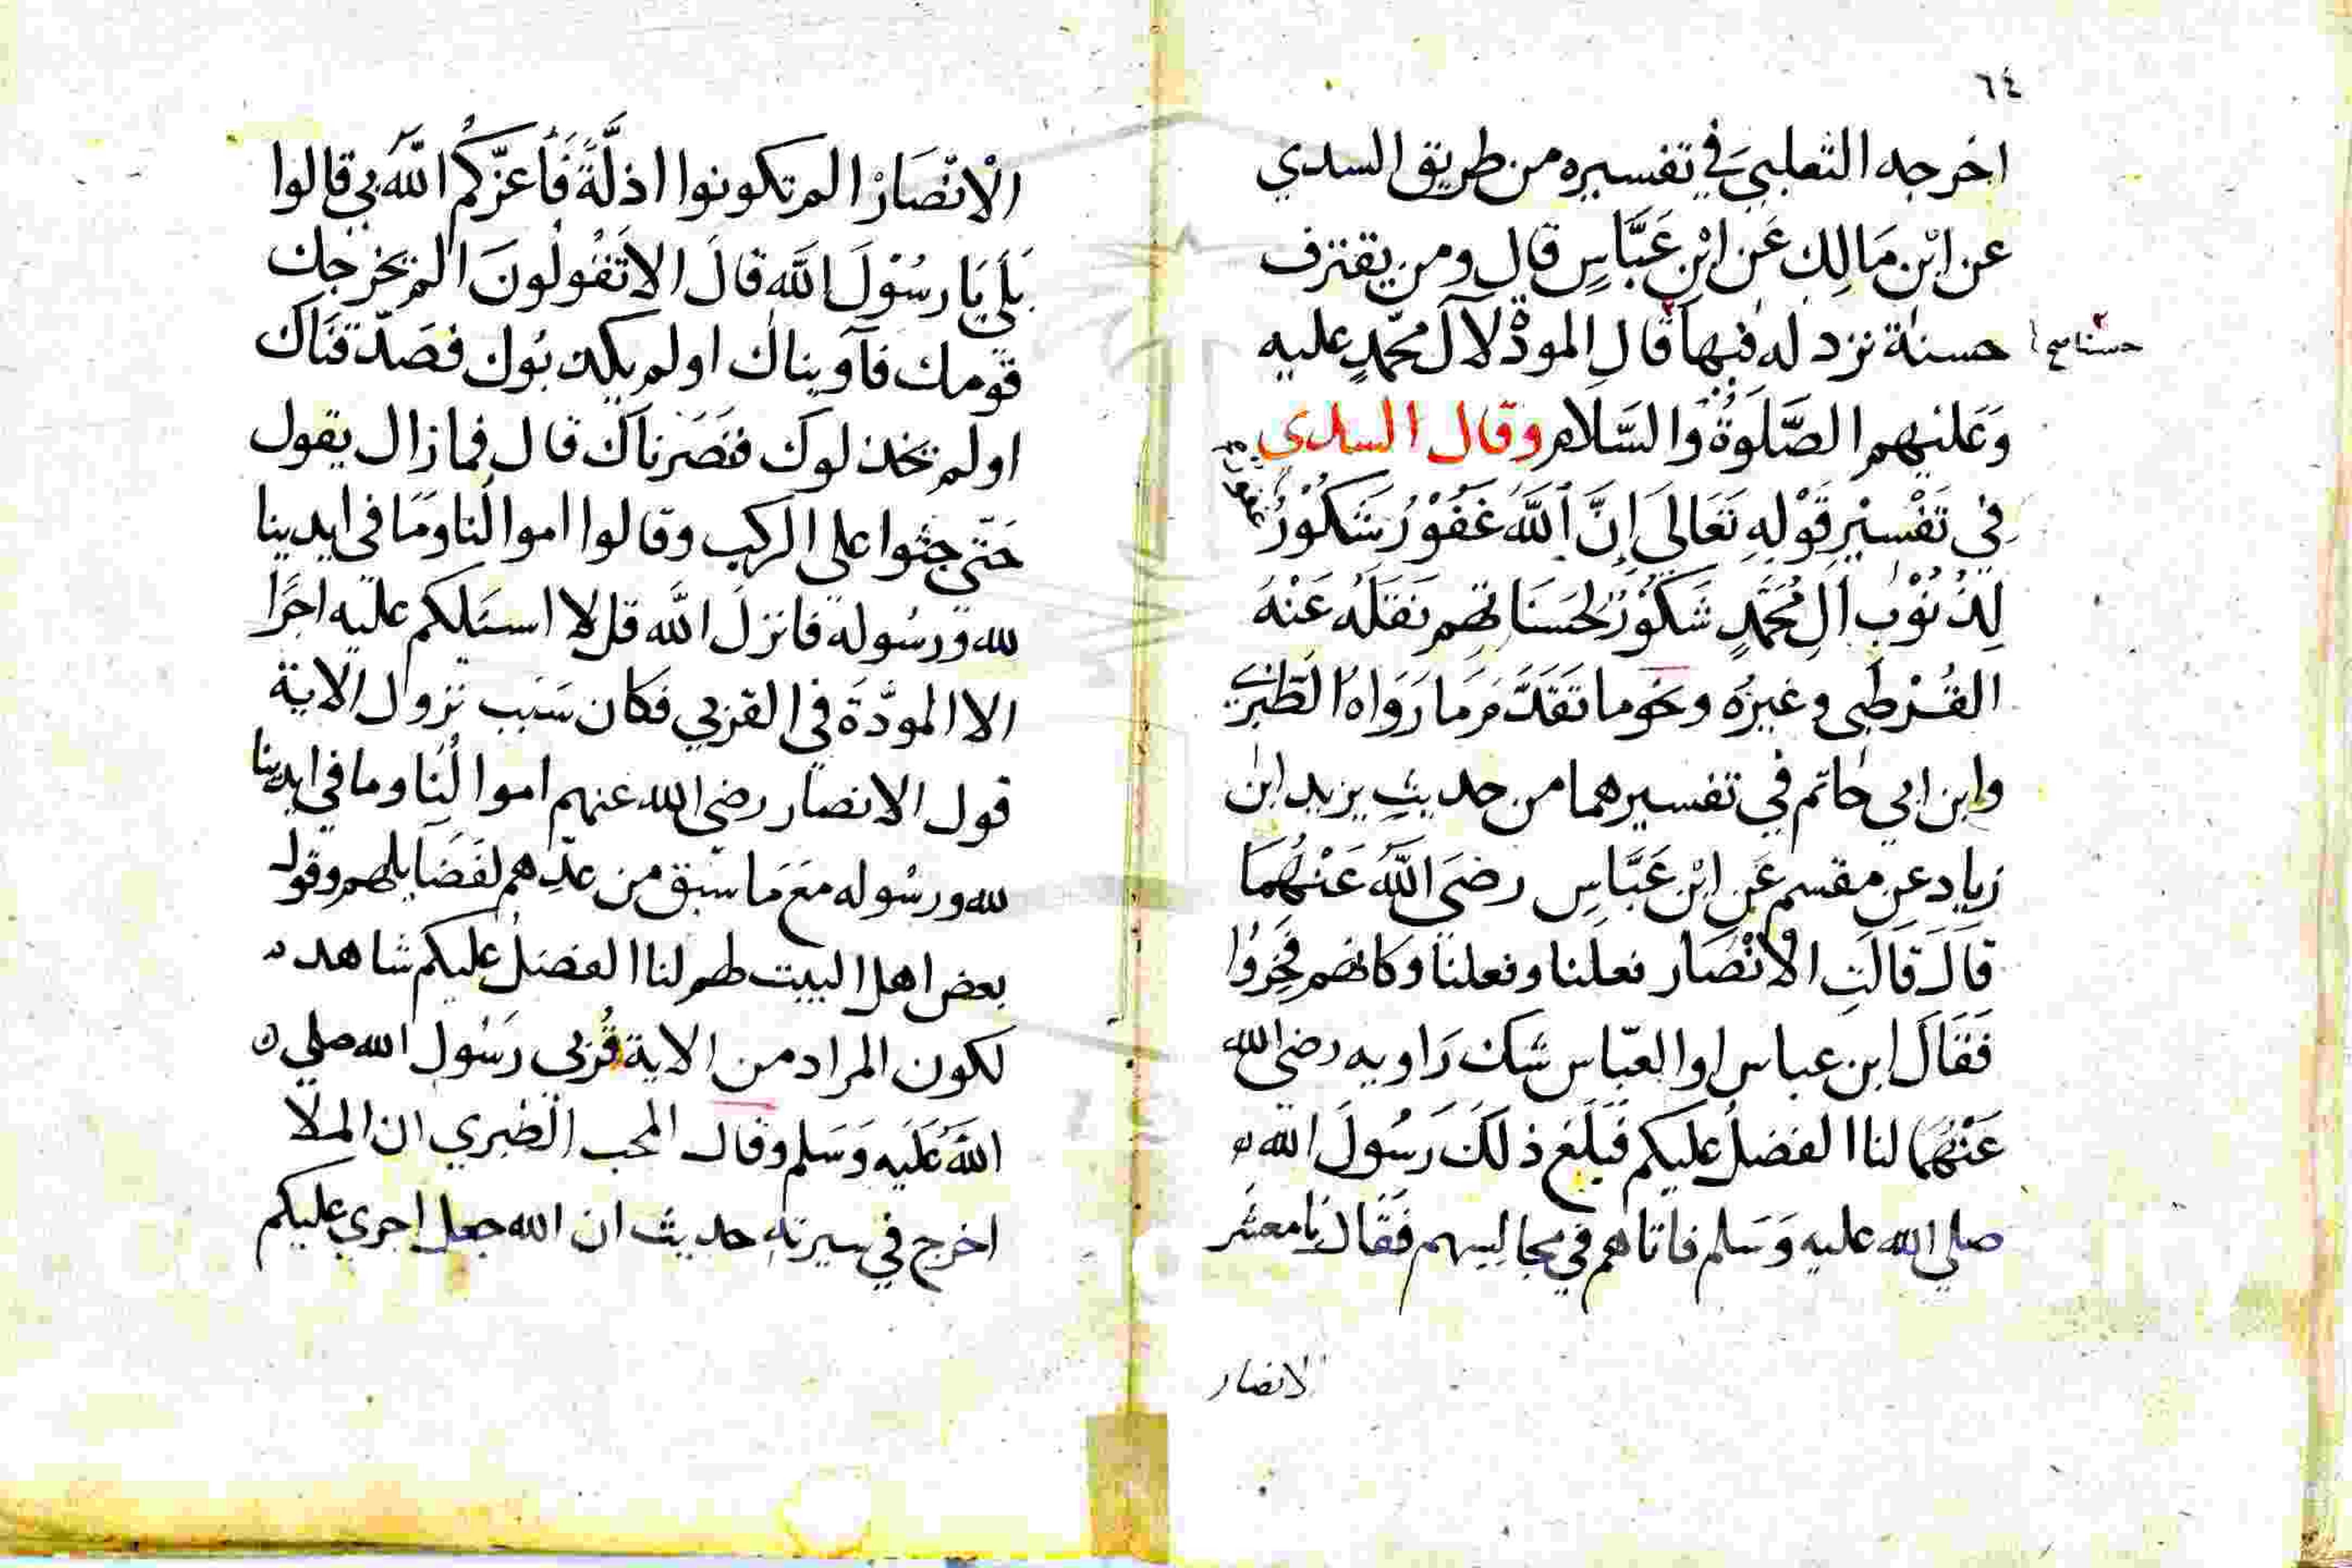 ٦٤
اخرجه الثعلبي في تفسيره من طريق السدي
عن ابْن مَالِك عَن ابْنِ عَبَّاسٍ قال ومن يقترف
حسنة نزد له فيها قال المودة لآل محمّدٍ عليه
حسنا صح
وَعَليهم الصَّلَوةُ وَالسَّلام وقال السدي
فِي تَفْسِيْرِ قَوْلِهِ تَعَالَي إِنَّ اللَّهَ غَفُوْرٌ شَكُوْرٌ
غفور
لِذُنُوْبِ آلِ مُحَمَّدٍ شَكُوْرٌ لِحَسَنَاتِهِم نَقَلَهُ عَنْهُ
القُرْطبي وغيرُه ونحو ما تَقَدَّمَ مَا رَوَاهُ الطَّبَرِي
وابن ابي حاتم في تفسيرهما من حديثِ يزيد ابن
زياد عن مقسم عَنِ ابْنِ عَبَّاسِ رضيَ اللَّهُ عَنْهُمَا
قَالَ قَالَتِ الْانْصَار فعلنا وفعلنا وَكانهم فَخِرُوا
فَقَالَ ابن عباس او العبّاس شك رَاويه رضي الله
عَنْهُمَا لنا الفضلُ عليكم فَبَلَغ ذلكَ رَسُولَ الله
صلي الله عليه وَسَلم فاتاهم في مجالِسِهم فَقَالَ يَا معشر
الانصار
الْانْصَارْ الم تكونوا اذلَّةً فَأعزَّكُم اللَّه بي قالوا
بَلَي يَا رسُوْلَ اللَّه قالَ الا تَقُولُونَ الم يخرجك
قومك فآويناك اولم يكذبُوك فصَدّقنَاك
اولم يخذلوك فنَصَرناك قال فما زال يقول
حَتّي جثوا علي الركب وقالوا اموالنا وَمَا في ايدينا
لله ورسُوله فانزلَ اللَّه قل لا اسئلكم عليه اجرًا
الا المودَّةَ في القربي فكان سَبَب نزول الاية
قول الانصار رضي الله عنهم اموالُنا وما في ايدينا
لله ورسُوله مَعَ مَا سَبق من عدِّهم لفَضَايلهم وقول
بعض اهل البيت لهم لنا الفضلُ عليكم شاهد
لكون المراد من الاية قُربي رَسُول الله صلي
اللَّهُ عَلَيه وَسَلم وقال المحب الطبري ان الملا
اخرج في سيرته حديث ان الله جعل اجري عليكم